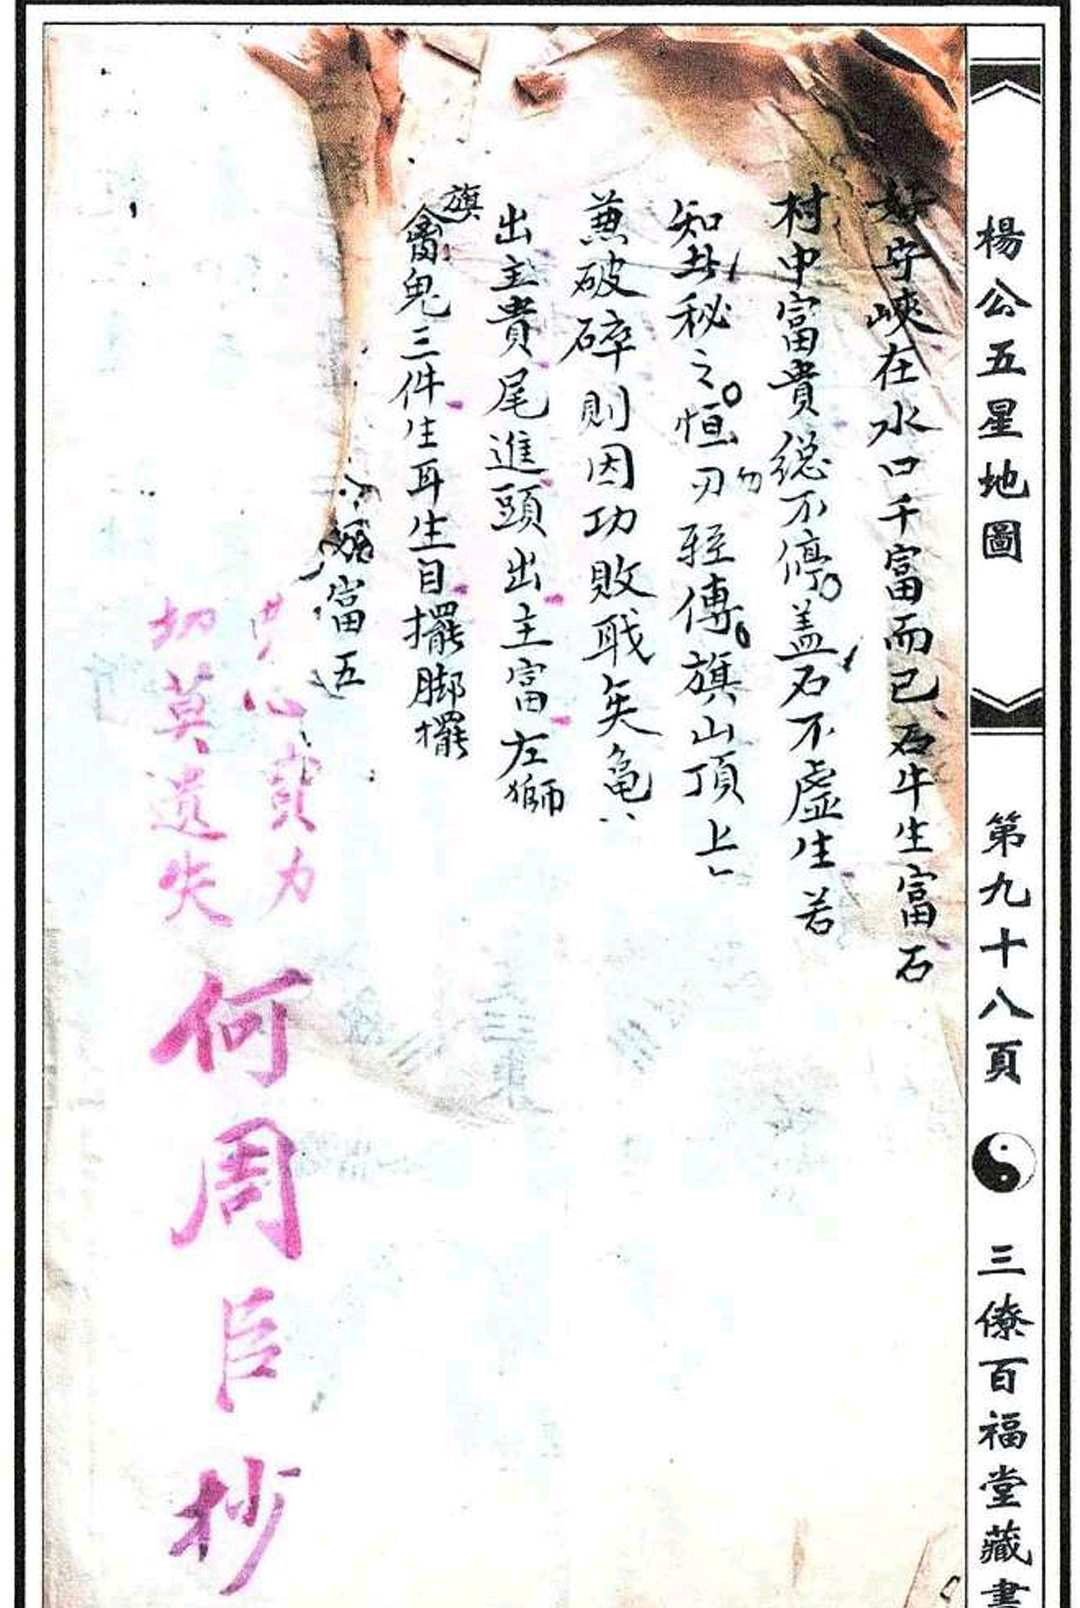 楊公五星地圖
第九十八頁
三僚百福堂藏書
好守峽在水口千富而已石牛生富石
村中富貴総不停盖石不虛生若
知此秘之恒刃勿輕傳旗山頂上
兼破碎則因功敗戢矣龟
出主貴尾進頭出主富左獅
旗
禽鬼三件生耳生目擺脚擺
富五
心寔力
切莫遺失
何周臣抄